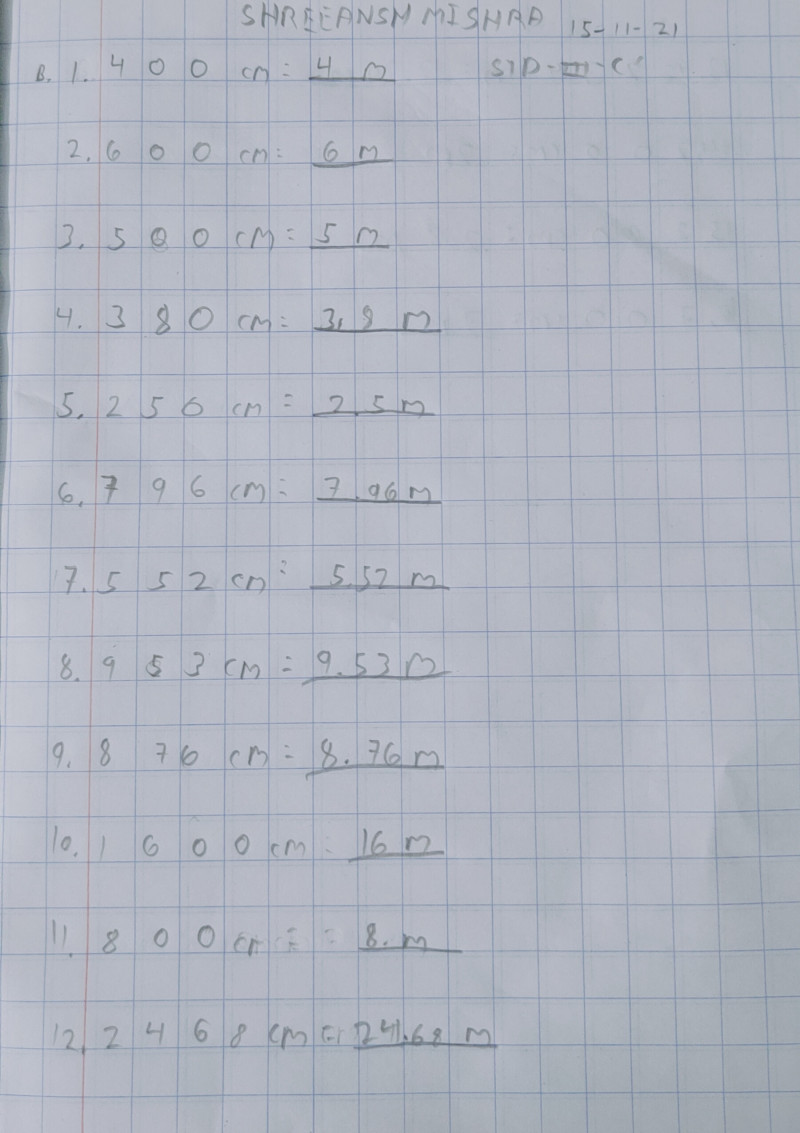 SHREEANSH MISHRA 15-11-21
B. 1. 400 cm = 4 m STD-III-C
2. 600 cm = 6 m
3. 500 cm = 5 m
4. 380 cm = 3.8 m
5. 250 cm = 2.5 m
6. 796 cm = 7.96 m
7. 552 cm = 5.52 m
8. 953 cm = 9.53 m
9. 876 cm = 8.76 m
10. 1600 cm = 16 m
11. 800 cm = = 8. m
12. 2468 cm = 24.68 m